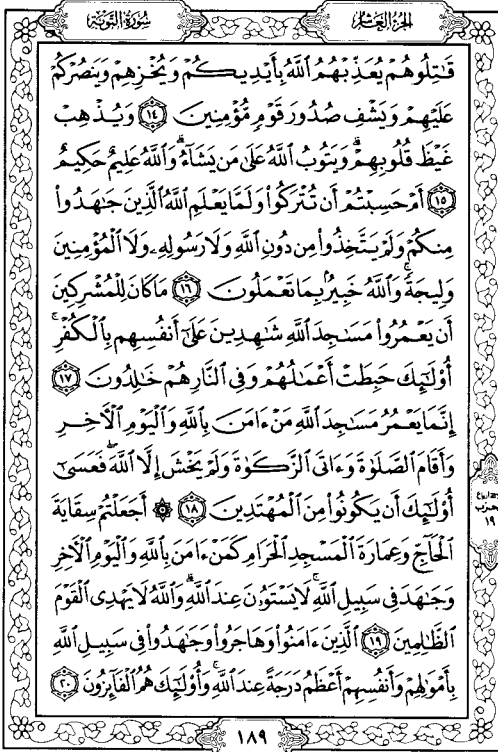 سُورَةُ التَّوْبَةِ
الجُزْءُ العَاشِرُ
قَٰتِلُوهُمْ يُعَذِّبْهُمُ ٱللَّهُ بِأَيْدِيكُمْ وَيُخْزِهِمْ وَيَنصُرْكُمْ
عَلَيْهِمْ وَيَشْفِ صُدُورَ قَوْمٍ مُّؤْمِنِينَ ١٤ وَيُذْهِبْ
غَيْظَ قُلُوبِهِمْ ۗ وَيَتُوبُ ٱللَّهُ عَلَىٰ مَن يَشَآءُ ۗ وَٱللَّهُ عَلِيمٌ حَكِيمٌ
١٥ أَمْ حَسِبْتُمْ أَن تُتْرَكُوا۟ وَلَمَّا يَعْلَمِ ٱللَّهُ ٱلَّذِينَ جَٰهَدُوا۟
مِنكُمْ وَلَمْ يَتَّخِذُوا۟ مِن دُونِ ٱللَّهِ وَلَا رَسُولِهِۦ وَلَا ٱلْمُؤْمِنِينَ
وَلِيجَةً ۚ وَٱللَّهُ خَبِيرٌۢ بِمَا تَعْمَلُونَ ١٦ مَا كَانَ لِلْمُشْرِكِينَ
أَن يَعْمُرُوا۟ مَسَٰجِدَ ٱللَّهِ شَٰهِدِينَ عَلَىٰٓ أَنفُسِهِم بِٱلْكُفْرِ ۚ
أُو۟لَٰٓئِكَ حَبِطَتْ أَعْمَٰلُهُمْ وَفِى ٱلنَّارِ هُمْ خَٰلِدُونَ ١٧
إِنَّمَا يَعْمُرُ مَسَٰجِدَ ٱللَّهِ مَنْ ءَامَنَ بِٱللَّهِ وَٱلْيَوْمِ ٱلْءَاخِرِ
وَأَقَامَ ٱلصَّلَوٰةَ وَءَاتَى ٱلزَّكَوٰةَ وَلَمْ يَخْشَ إِلَّا ٱللَّهَ ۖ فَعَسَىٰٓ
أُو۟لَٰٓئِكَ أَن يَكُونُوا۟ مِنَ ٱلْمُهْتَدِينَ ١٨ ۞ أَجَعَلْتُمْ سِقَايَةَ
ٱلْحَآجِّ وَعِمَارَةَ ٱلْمَسْجِدِ ٱلْحَرَامِ كَمَنْ ءَامَنَ بِٱللَّهِ وَٱلْيَوْمِ ٱلْءَاخِرِ
وَجَٰهَدَ فِى سَبِيلِ ٱللَّهِ ۚ لَا يَسْتَوُۥنَ عِندَ ٱللَّهِ ۗ وَٱللَّهُ لَا يَهْدِى ٱلْقَوْمَ
ٱلظَّٰلِمِينَ ١٩ ٱلَّذِينَ ءَامَنُوا۟ وَهَاجَرُوا۟ وَجَٰهَدُوا۟ فِى سَبِيلِ ٱللَّهِ
بِأَمْوَٰلِهِمْ وَأَنفُسِهِمْ أَعْظَمُ دَرَجَةً عِندَ ٱللَّهِ ۚ وَأُو۟لَٰٓئِكَ هُمُ ٱلْفَآئِزُونَ ٢٠
حزب
١٩
١٨٩